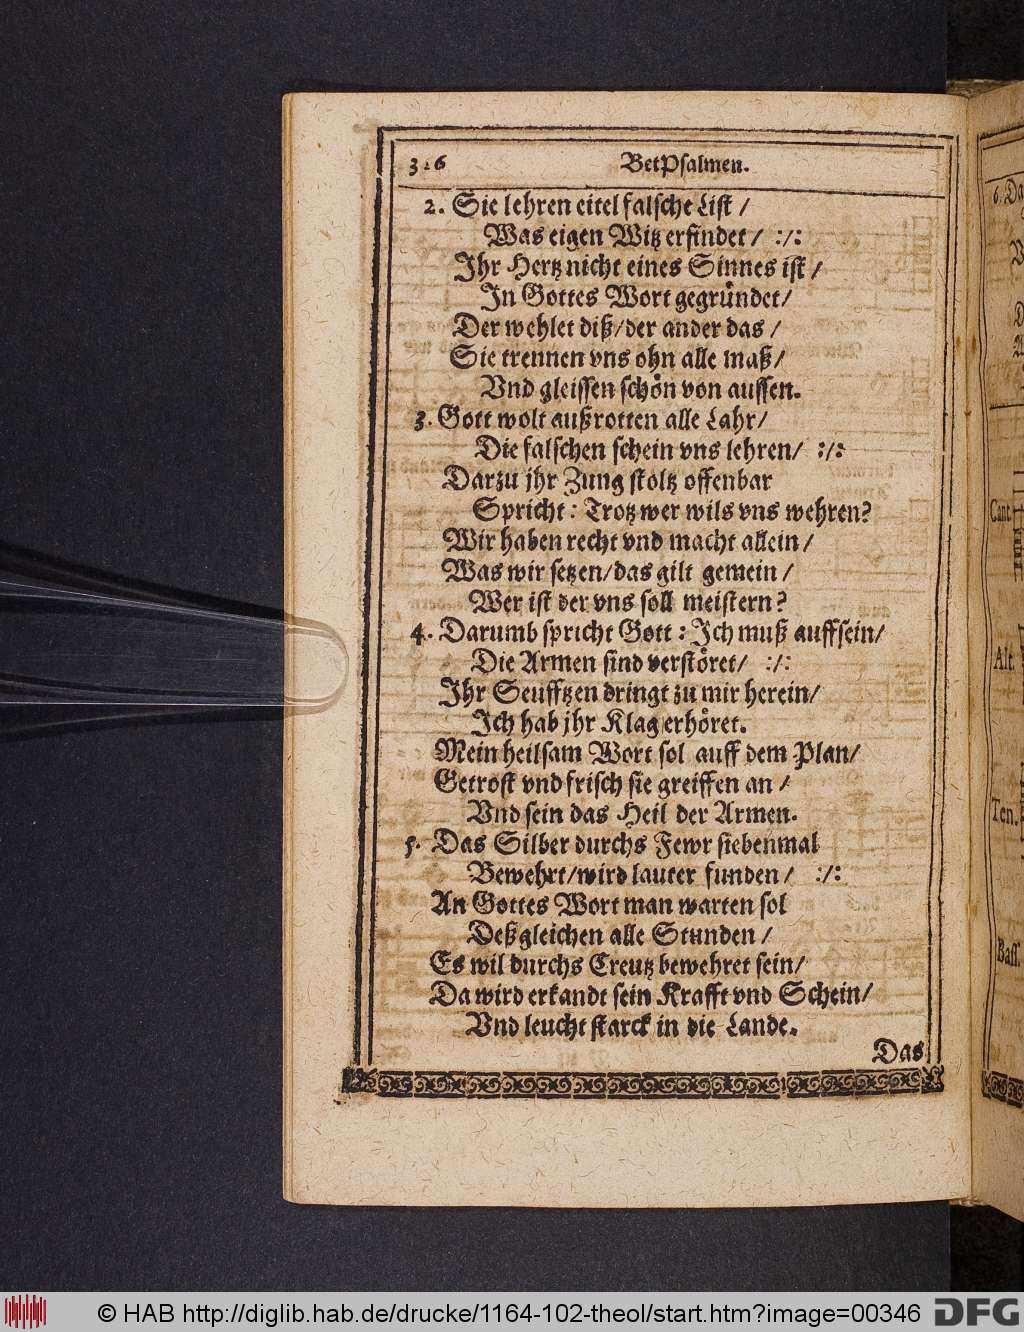 3.6 BetPsalmen.
2. Sie lehren eitel falsche List /
Was eigen Witz erfindet / :/:
Ihr Hertz nicht eines Sinnes ist /
In Gottes Wort gegründet /
Der wehlet diß / der ander das /
Sie trennen vns ohn alle maß /
Vnd gleissen schön von aussen.
3. Gott wolt außrotten alle Lahr /
Die falschen schein vns lehren / :/:
Darzu jhr Zung stoltz offenbar
Spricht : Trotz wer wils vns wehren?
Wir haben recht vnd macht allein /
Was wir setzen / das gilt gemein /
Wer ist der vns soll meistern?
4. Darumb spricht Gott : Ich muß auff sein /
Die Armen sind verstöret / :/:
Ihr Seufftzen dringt zu mir herein /
Ich hab jhr Klag erhöret.
Mein heilsam Wort sol auff dem Plan /
Getrost vnd frisch sie greiffen an /
Vnd sein das Heil der Armen.
5. Das Silber durchs Fewr siebenmal
Bewehrt / wird lauter funden / :/:
An Gottes Wort man warten sol
Deßgleichen alle Stunden /
Es wil durchs Creutz bewehret sein /
Da wird erkandt sein Krafft vnd Schein /
Vnd leucht starck in die Lande.
Das
6. Da
Cant
Alt.
Ten.
Bass.
© HAB http://diglib.hab.de/drucke/1164-102-theol/start.htm?image=00346 DFG